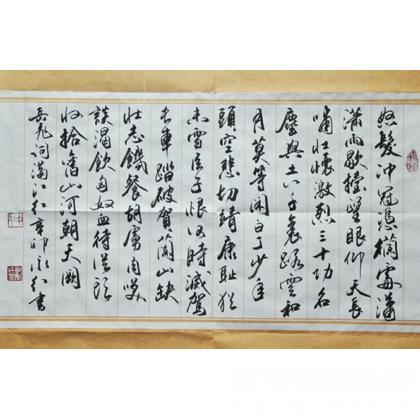 怒髮冲冠憑欄處瀟
瀟雨歇擡望眼仰天長
嘯壯懷激烈三十功名
塵與土八千里路雲和
月莫等閑白了少年
頭空悲切靖康耻猶
未雪臣子恨何時滅駕
長車踏破賀蘭山缺
壯志饑餐胡虜肉笑
談渴飲匈奴血待從頭
收拾舊山河朝天闕
岳飛詞滿江紅辛卯永红書